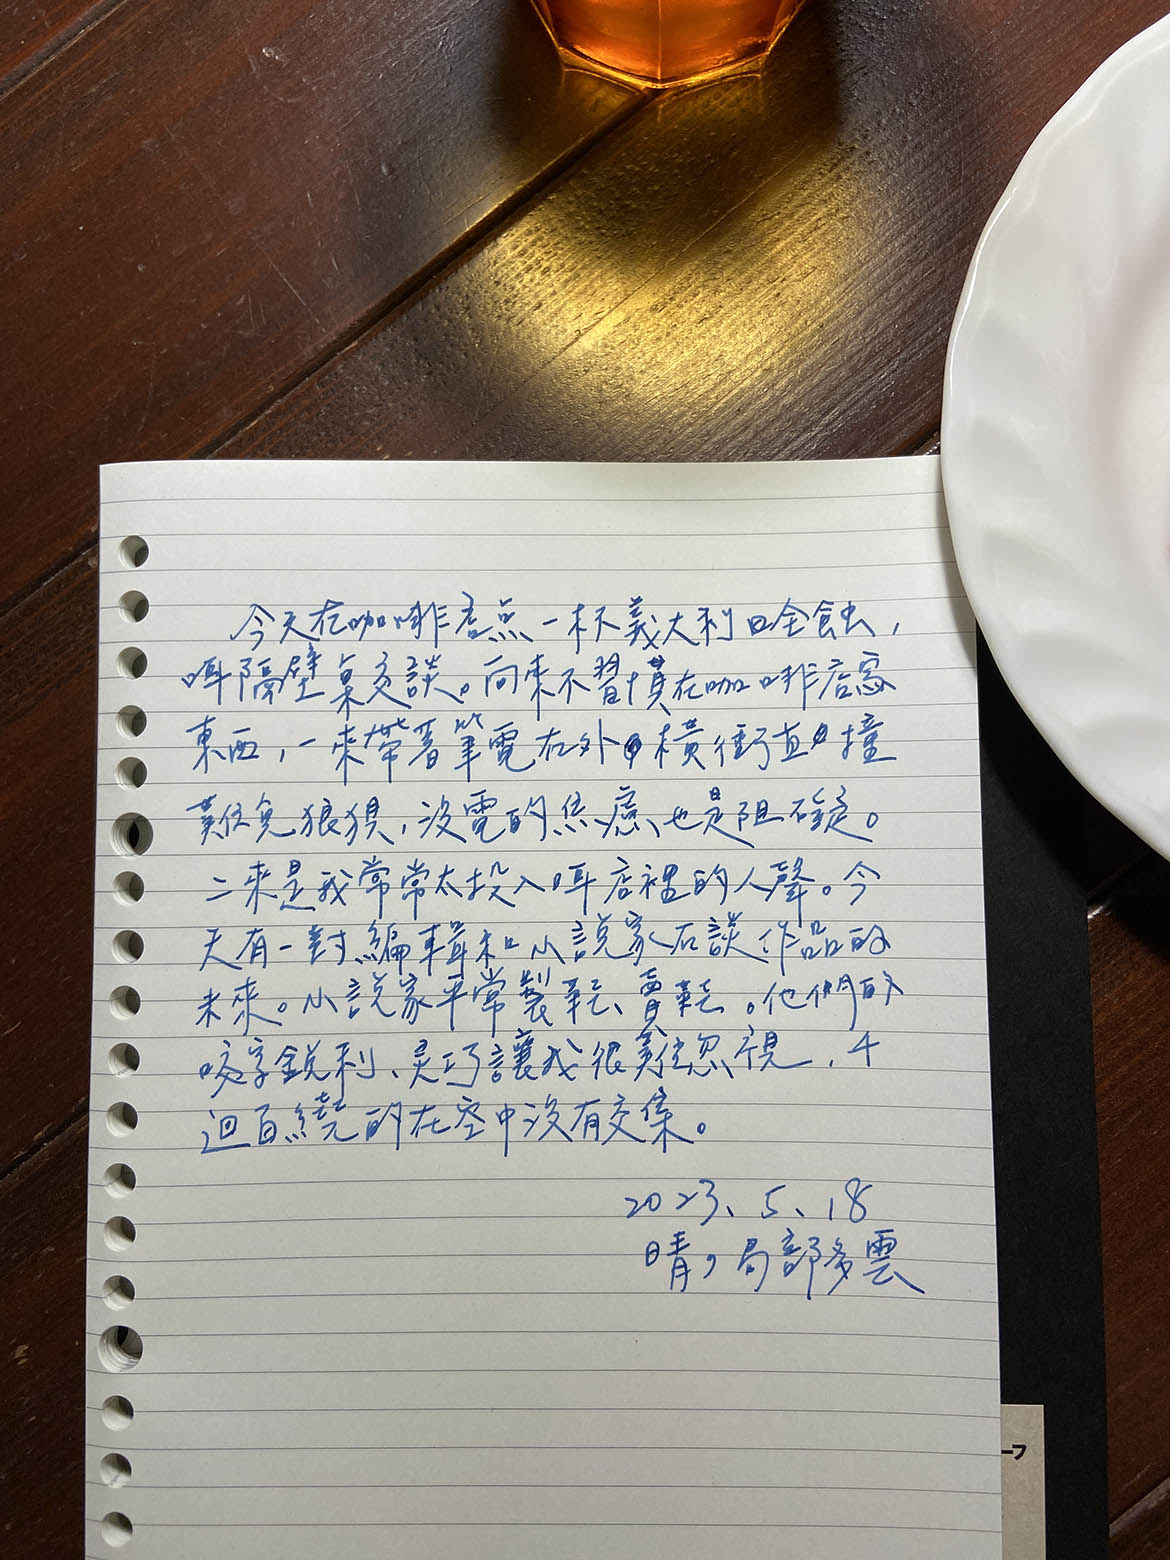 今天在咖啡店点一杯義大利日全蝕，
唔隔壁桌交談。向來不習慣在咖啡店寫
東西，一來帶著筆電在外橫衝直撞
難免狼狽，沒電的焦慮也是阻礙。
二來是我常常太投入唔店裡的人聲。今
天有一對編輯和小說家在談作品的
未來。小說家平常製鞋、賣鞋。他們的
咬字銳利、灵巧讓我很難忽視，千
迴百繞的在空中沒有交集。
2023、5、18
晴，局部多雲
ーフ